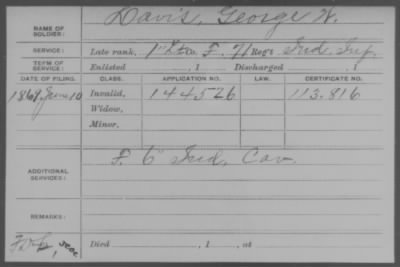 NAME OF SOLDIER: Davis, George W.
SERVICE: Late rank, 1" Lt Co F, 71 Reg't Ind. Inf.
TERM OF SERVICE: Enlisted , 1 Discharged , 1
DATE OF FILING. CLASS. APPLICATION NO. LAW. CERTIFICATE NO.
1869, June 10 Invalid, 144526 113.816
Widow,
Minor,
ADDITIONAL SERVICES: F. 6" Ind, Cav
REMARKS:
Died , 1 , at